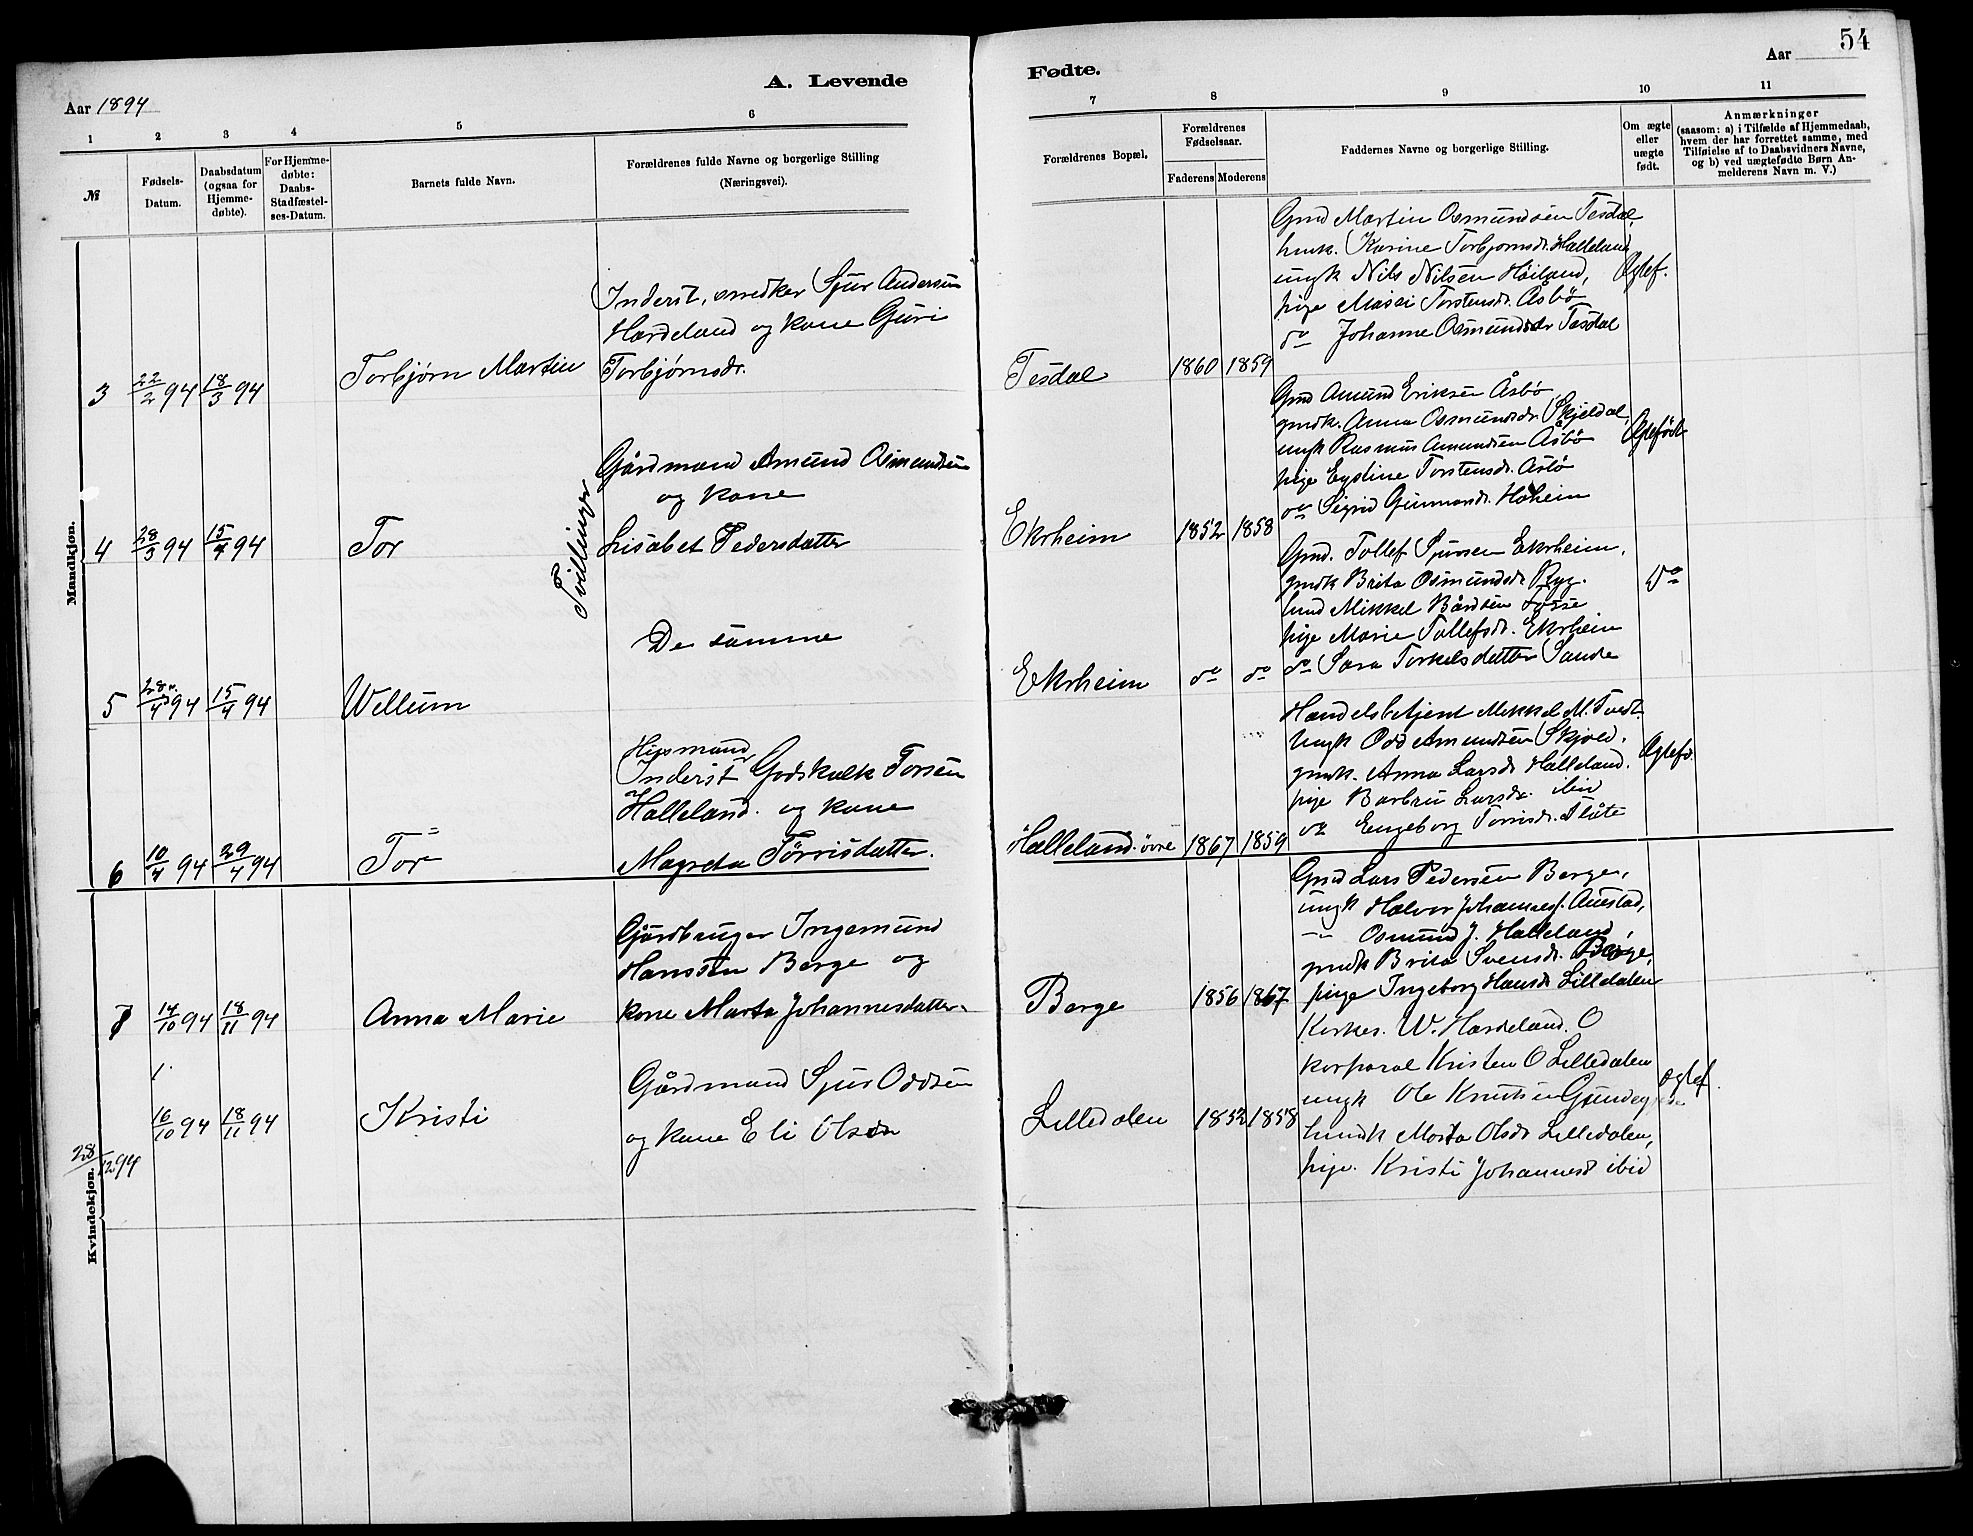 54
Aar 1894
A. Levende
Fødte.
Aar
1 2 3 4 5 6 7 8 9 10 11
№
Fødsels-
Datum.
Daabsdatum
(ogsaa for
Hjemme-
døbte).
For Hjemme-
døbte:
Daabs-
Stadfæstel-
ses-Datum.
Barnets fulde Navn.
Forældrenes fulde Navne og borgerlige Stilling
(Næringsvei).
Forældrenes Bopæl.
Forældrenes
Fødselsaar.
Faderens Moderens
Faddernes Navne og borgerlige Stilling.
Om ægte
eller
uægte
født.
Anmærkninger
(saasom: a) i Tilfælde af Hjemmedaab,
hvem der har forrettet samme, med
Tilføielse af to Daabsvidners Navne,
og b) ved uægtefødte Børn An-
melderens Navn m. V.)
Mandkjøn.
3 22/2 94 18/3 94 Torbjørn Martin
Inderst, snedker Sjur Andersen
Hardeland og kone Guri
Torbjørnsdr.
Tesdal 1860 1859
Gmd Martin Osmundsen Tesdal,
hmk. Karine Torbjørnsdr. Halleland
ungk Nils Nilsen Høiland,
pige Torstensdr. Åsbø
do Johanne Osmundsdr Tesdal
Ægtef.
4 28/3 94 15/4 94 Tor
Tvillinger
Gårdmand Amund Osmundsen
og kone
Lisabet Pedersdatter
Ekrheim 1852 1858
Gmd Amund Eriksen Åsbø
gmdk. Anna Osmundsdr. Skjeldal,
ungk Rasmus Amundsen Åsbø
pige Torstensdr. Åsbø
do Sigrid Gunnarsdr. Høheim
Ægtefødt
5 94 15/4 94 Wellum
De samme
Ekrheim do do
Gmd. Tollef Sjursen Ekrheim,
gmdk Brita Osmundsdr Ryg.
Mikkel Bårdsen Fosse
pige Marie Tollefsdr. Ekrheim
do Sara Torkelsdatter Sande
Do
6 10/4 94 29/4 94 Tor
Inderst Godskalk Torsen
Halleland. og kone
Magreta Tørrisdatter.
Halleland øvre 1867 1859
Handelsbetjent Mikkel M. Tvedt.
Ungk Odd Amundsen Skjold,
gmdk. Anna Larsdr Halleland.
pige Barbru Larsdr. ibid
do Engeborg Tørrisdr. Flåte
Ægtefd.
Kvindekjøn.
7 14/10 94 18/11 94 Anna Marie
Gårdbruger Ingemund
Hanssen Berge og
kone Marta Johannesdatter
Berge 1856 1867
Gmd Lars Pedersen Berge,
ungk Halvor Johannesf. Austad,
-"- Osmund J. Halleland,
gmdk Brita Svensdr. Berge,
pige Ingeborg Hansdr Lilledalen
16/10 94 18/11 94 Kristi
Gårdmand Sjur Oddsen
og kone Eli Olsdr
Lilledalen 1852 1858
Kirkes. W. Hardeland. O
korporal Kristen O Lilledalen
ungk Ole Knutsen
Marta Olsdr Lilledalen,
pige. Kristi Johannesd ibid
ægtef.
28/12 94